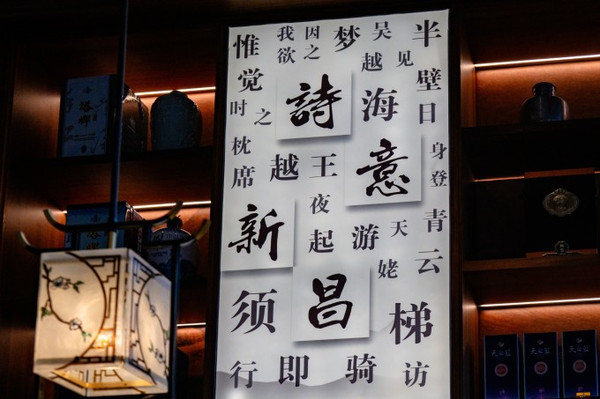 惟 我欲 因之 梦 吴越 见 半
觉 壁
时 之 詩 海 日
枕席 越 王 意 身登
新 夜 起 游 天姥 青云
须 昌 梯
行 即 骑 访
塔牌